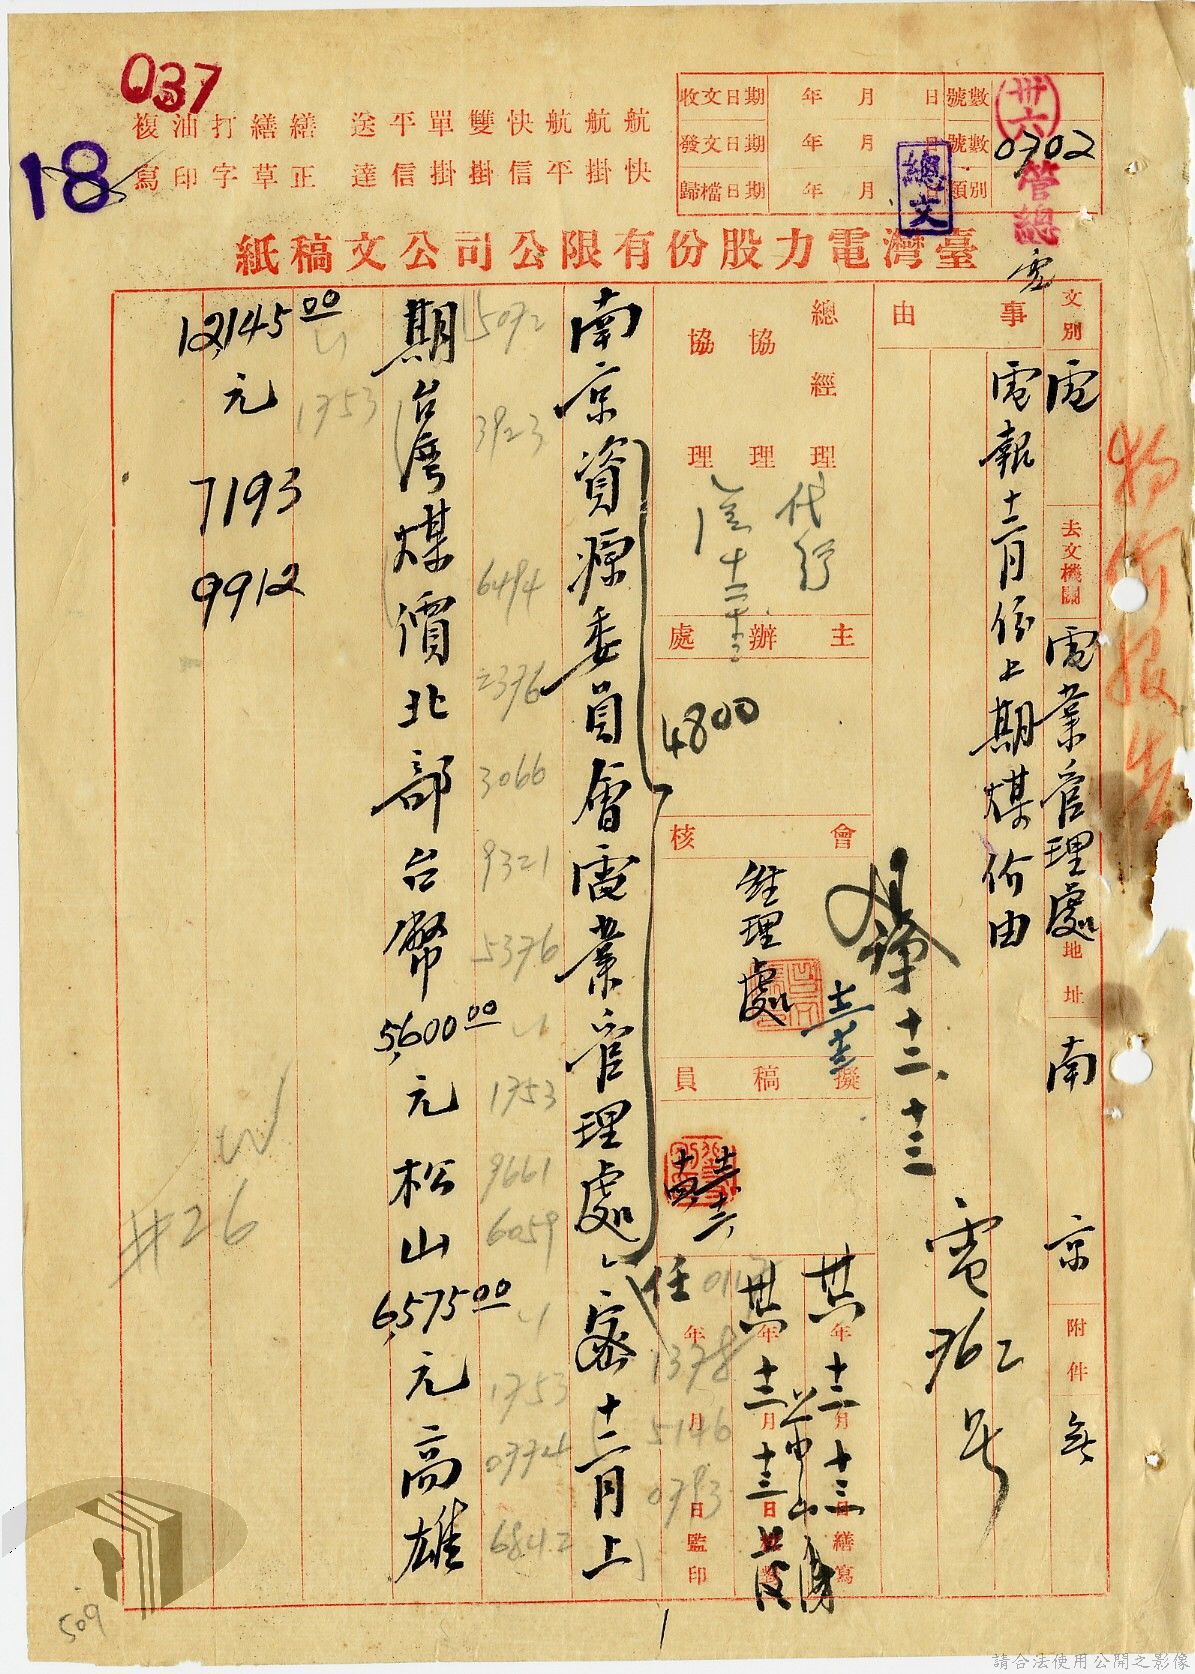 037
18
航快
航掛
航平
快信
雙掛
單掛
平信
送達
繕正
繕草
打字
油印
複寫
收文日期 年 月 日 號數
發文日期 年 月 日 號數 0702
歸檔日期 年 月 日 類別
卅六
管總
總文
臺灣電力股份有限公司公文稿紙
物價報告
文別 電
去文機關 電業管理處
地址 南京
附件 無
事由
電報十二月份上期煤價由
電962号
十二、十三
總經理 代行
協理
協理
主辦處
4800
會核
經理處
擬稿員
卅六年十二月十三日繕寫
卅六年十二月十三日
年 月 日監印
任
0117
1378
5146
0793
南京資源委員會電業管理處、密十二月上
5092
3923
6494
2376
3066
9321
5376
1753
9661
6059
1753
0774
6842
期台灣煤價北部台幣5,600.00元松山6,575.00元高雄
1753
12,145.00元
7193
9912
#26
509
1
請合法使用公開之影像